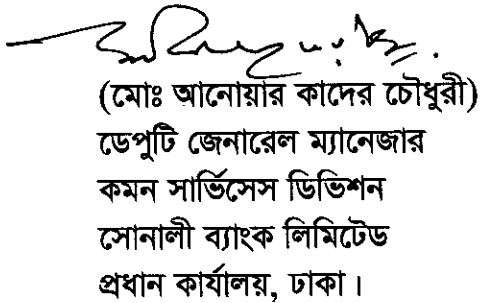 (মোঃ আনোয়ার কাদের চৌধুরী)
ডেপুটি জেনারেল ম্যানেজার
কমন সার্ভিসেস ডিভিশন
সোনালী ব্যাংক লিমিটেড
প্রধান কার্যালয়, ঢাকা।